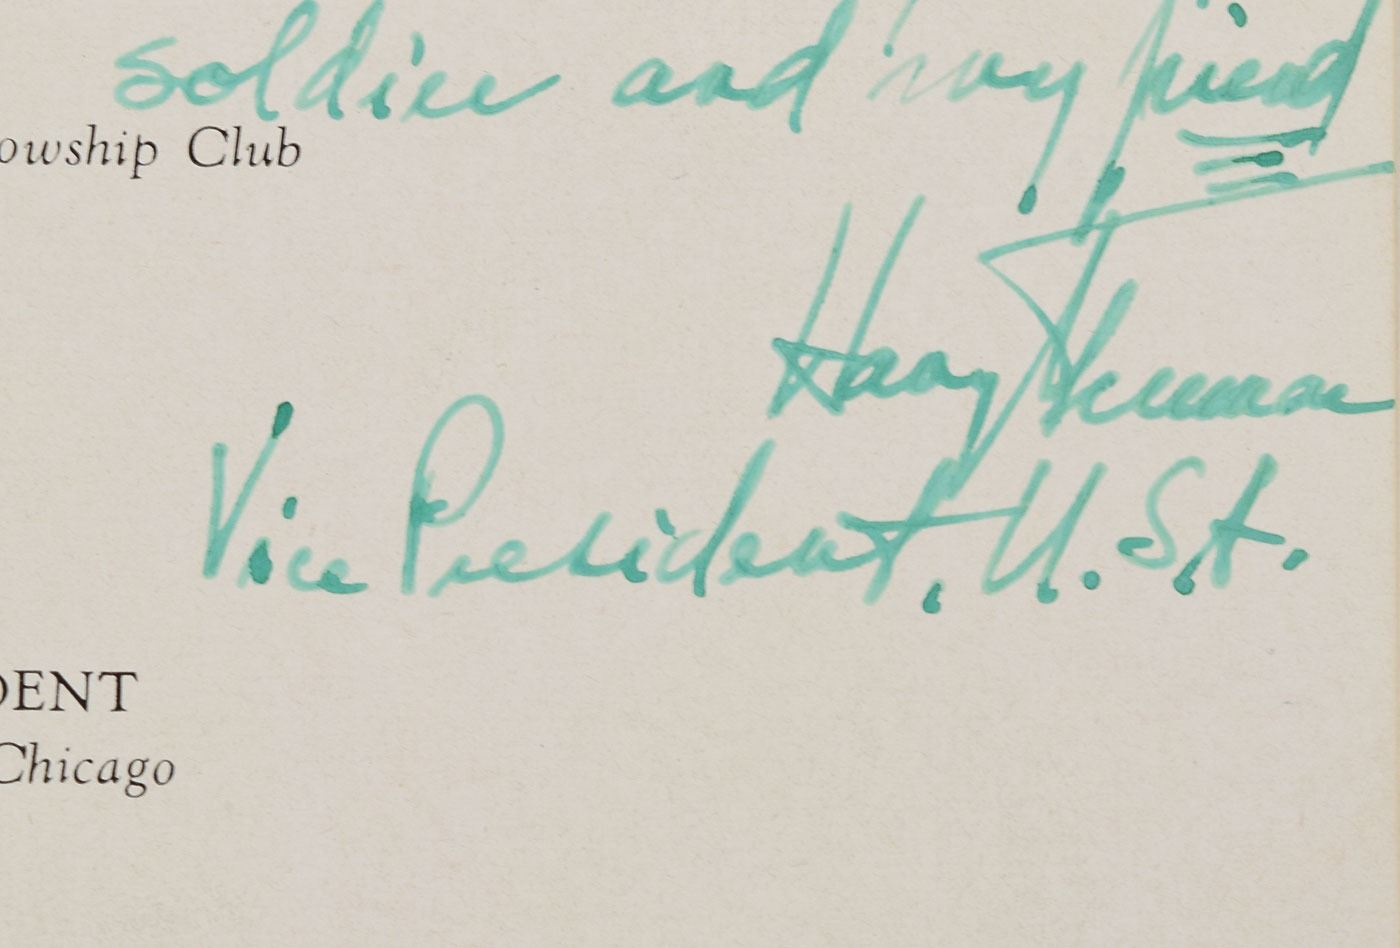 soldier and my friend
owship Club
Harry Truman
Vice President, U.St.
DENT
Chicago